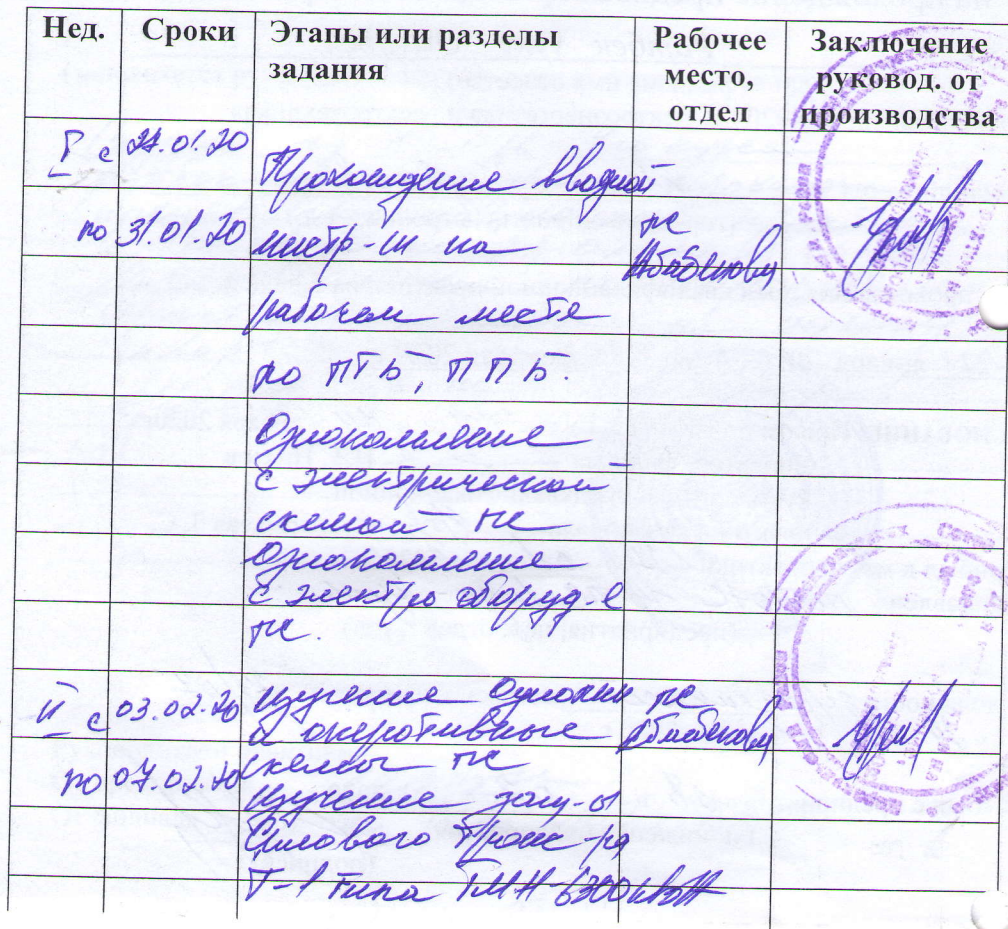 Нед. Сроки Этапы или разделы задания Рабочее место, отдел Заключение руковод. от производства
I с 27.01.20 Прохождение вводной
по 31.01.20 инстр-ш на пс
рабочем месте
по ПТБ, ППБ.
Ознокомление
с электрической
схемой пс
Ознокомление
с электро оборуд-е
пс.
II с 03.02.20 Изучение однолин пс
и оперотивные
по 07.02.20 схемы пс
Изучение защ-ы
Силового Транс-ра
Т-1 типа ТМН-6300кВА